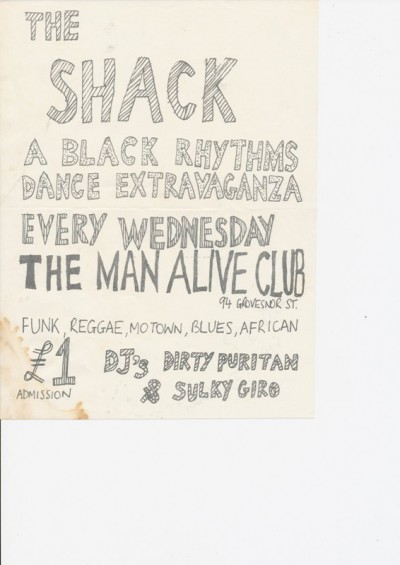 THE
SHACK
A BLACK RHYTHMS
DANCE EXTRAVAGANZA
EVERY WEDNESDAY
THE MAN ALIVE CLUB
94 GROVESNOR ST.
FUNK, REGGAE, MOTOWN, BLUES, AFRICAN
£1 DJ's DIRTY PURITAN
ADMISSION & SULKY GIRO